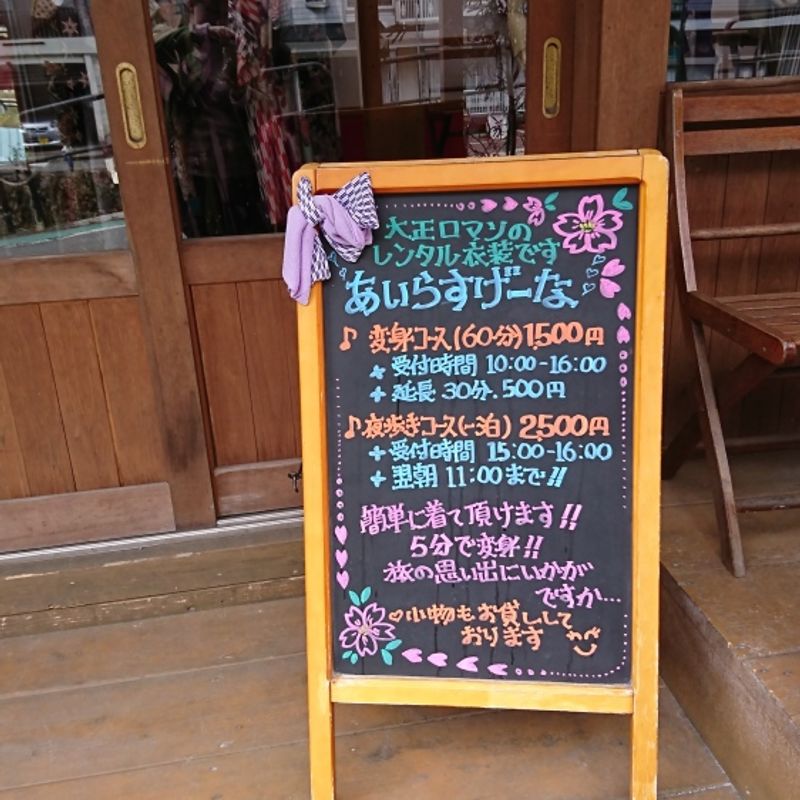 大正ロマンの
レンタル衣装です
あいらすげーな
♪ 変身コース(60分)1,500円
+ 受付時間 10:00-16:00
+ 延長 30分.500円
♪ 夜歩きコース(一泊) 2,500円
+ 受付時間 15:00-16:00
+ 翌朝 11:00まで!!
簡単に着て頂けます!!
5分で変身!!
旅の思い出にいかが
ですか...
小物もお貸しして
おります